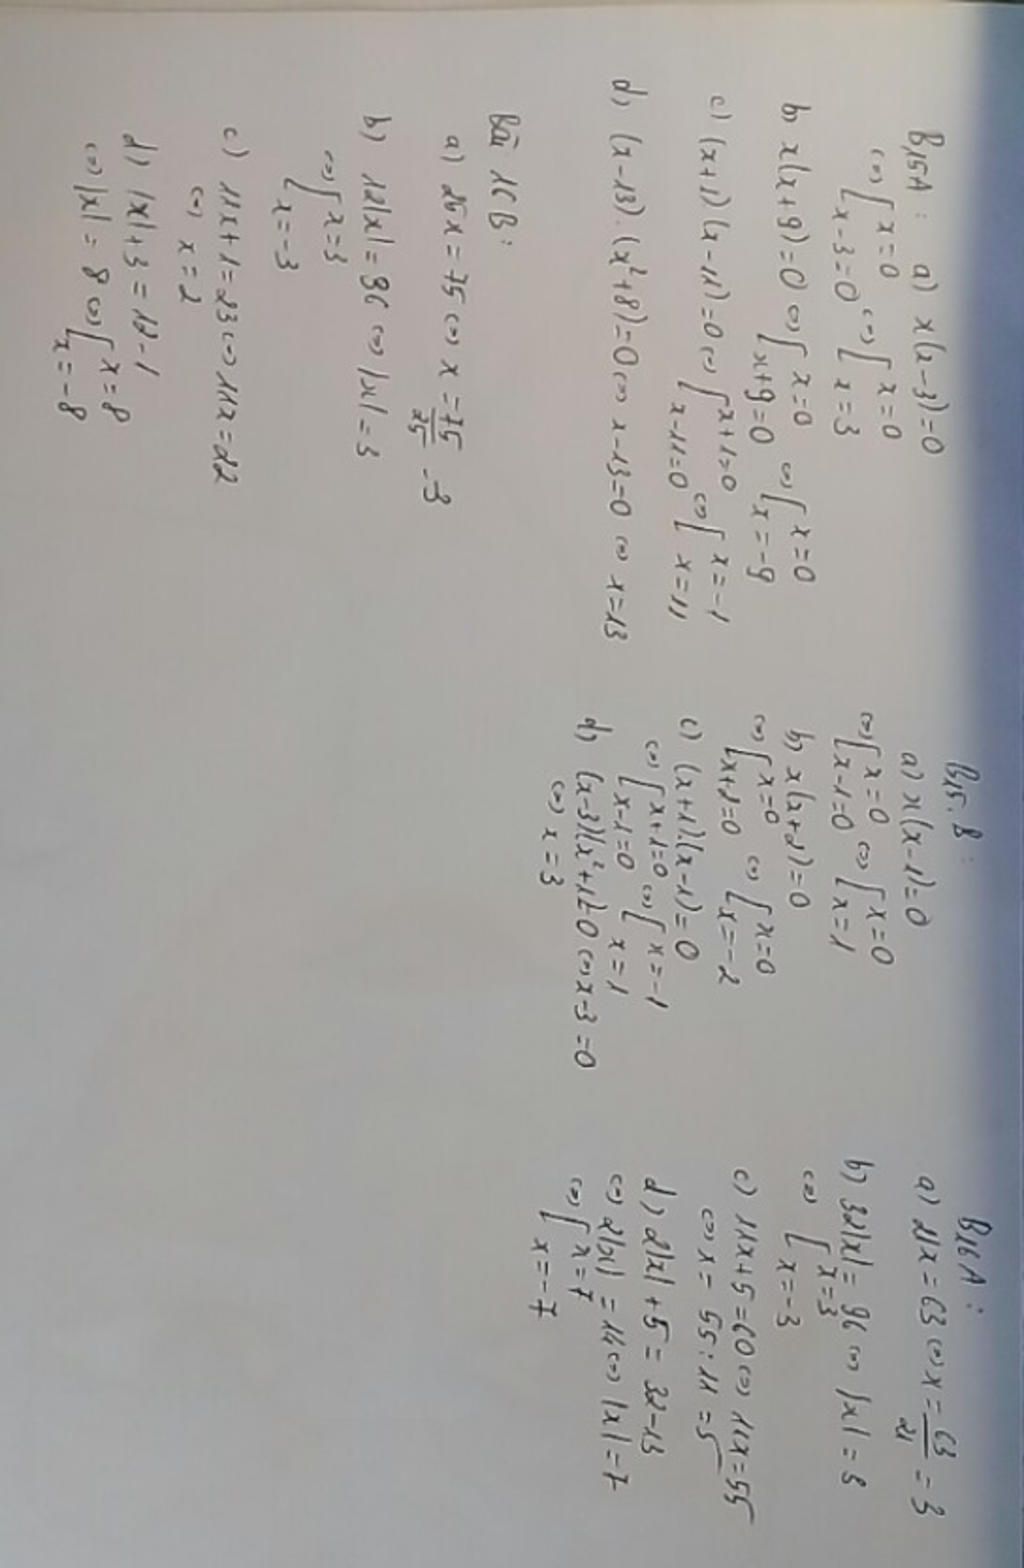 B,15A : a) x(x-3)=0
<=> [ x=0 <=> [ x=0
x-3=0 x=3
b, x(x+9)=0 <=> [ x=0 <=> [ x=0
x+9=0 x=-9
c) (x+1)(x-11)=0 <=> [ x+1=0 <=> [ x=-1
x-11=0 x=11
d, (x-13).(x²+8)=0 <=> x-13=0 <=> x=13
Bài 16B:
a) 25x=75 <=> x=75/25=3
b) 12|x|=36 <=> |x|=3
<=> [ x=3
x=-3
c) 11x+1=23 <=> 11x=22
<=> x=2
d) |x|+3=12-1
<=> |x|=8 <=> [ x=8
x=-8
B,15.B:
a) x(x-1)=0
<=> [ x=0 <=> [ x=0
x-1=0 x=1
b, x(x+2)=0
<=> [ x=0 <=> [ x=0
x+2=0 x=-2
c) (x+1).(x-1)=0
<=> [ x+1=0 <=> [ x=-1
x-1=0 x=1
d) (x-3)(x²+1)=0 <=> x-3=0
<=> x=3
B16A:
a) 21x=63 <=> x=63/21=3
b) 32|x|=96 <=> |x|=3
<=> [ x=3
x=-3
c) 11x+5=60 <=> 11x=55
<=> x=55:11=5
d) 2|x|+5=32-13
<=> 2|x|=14 <=> |x|=7
<=> [ x=7
x=-7